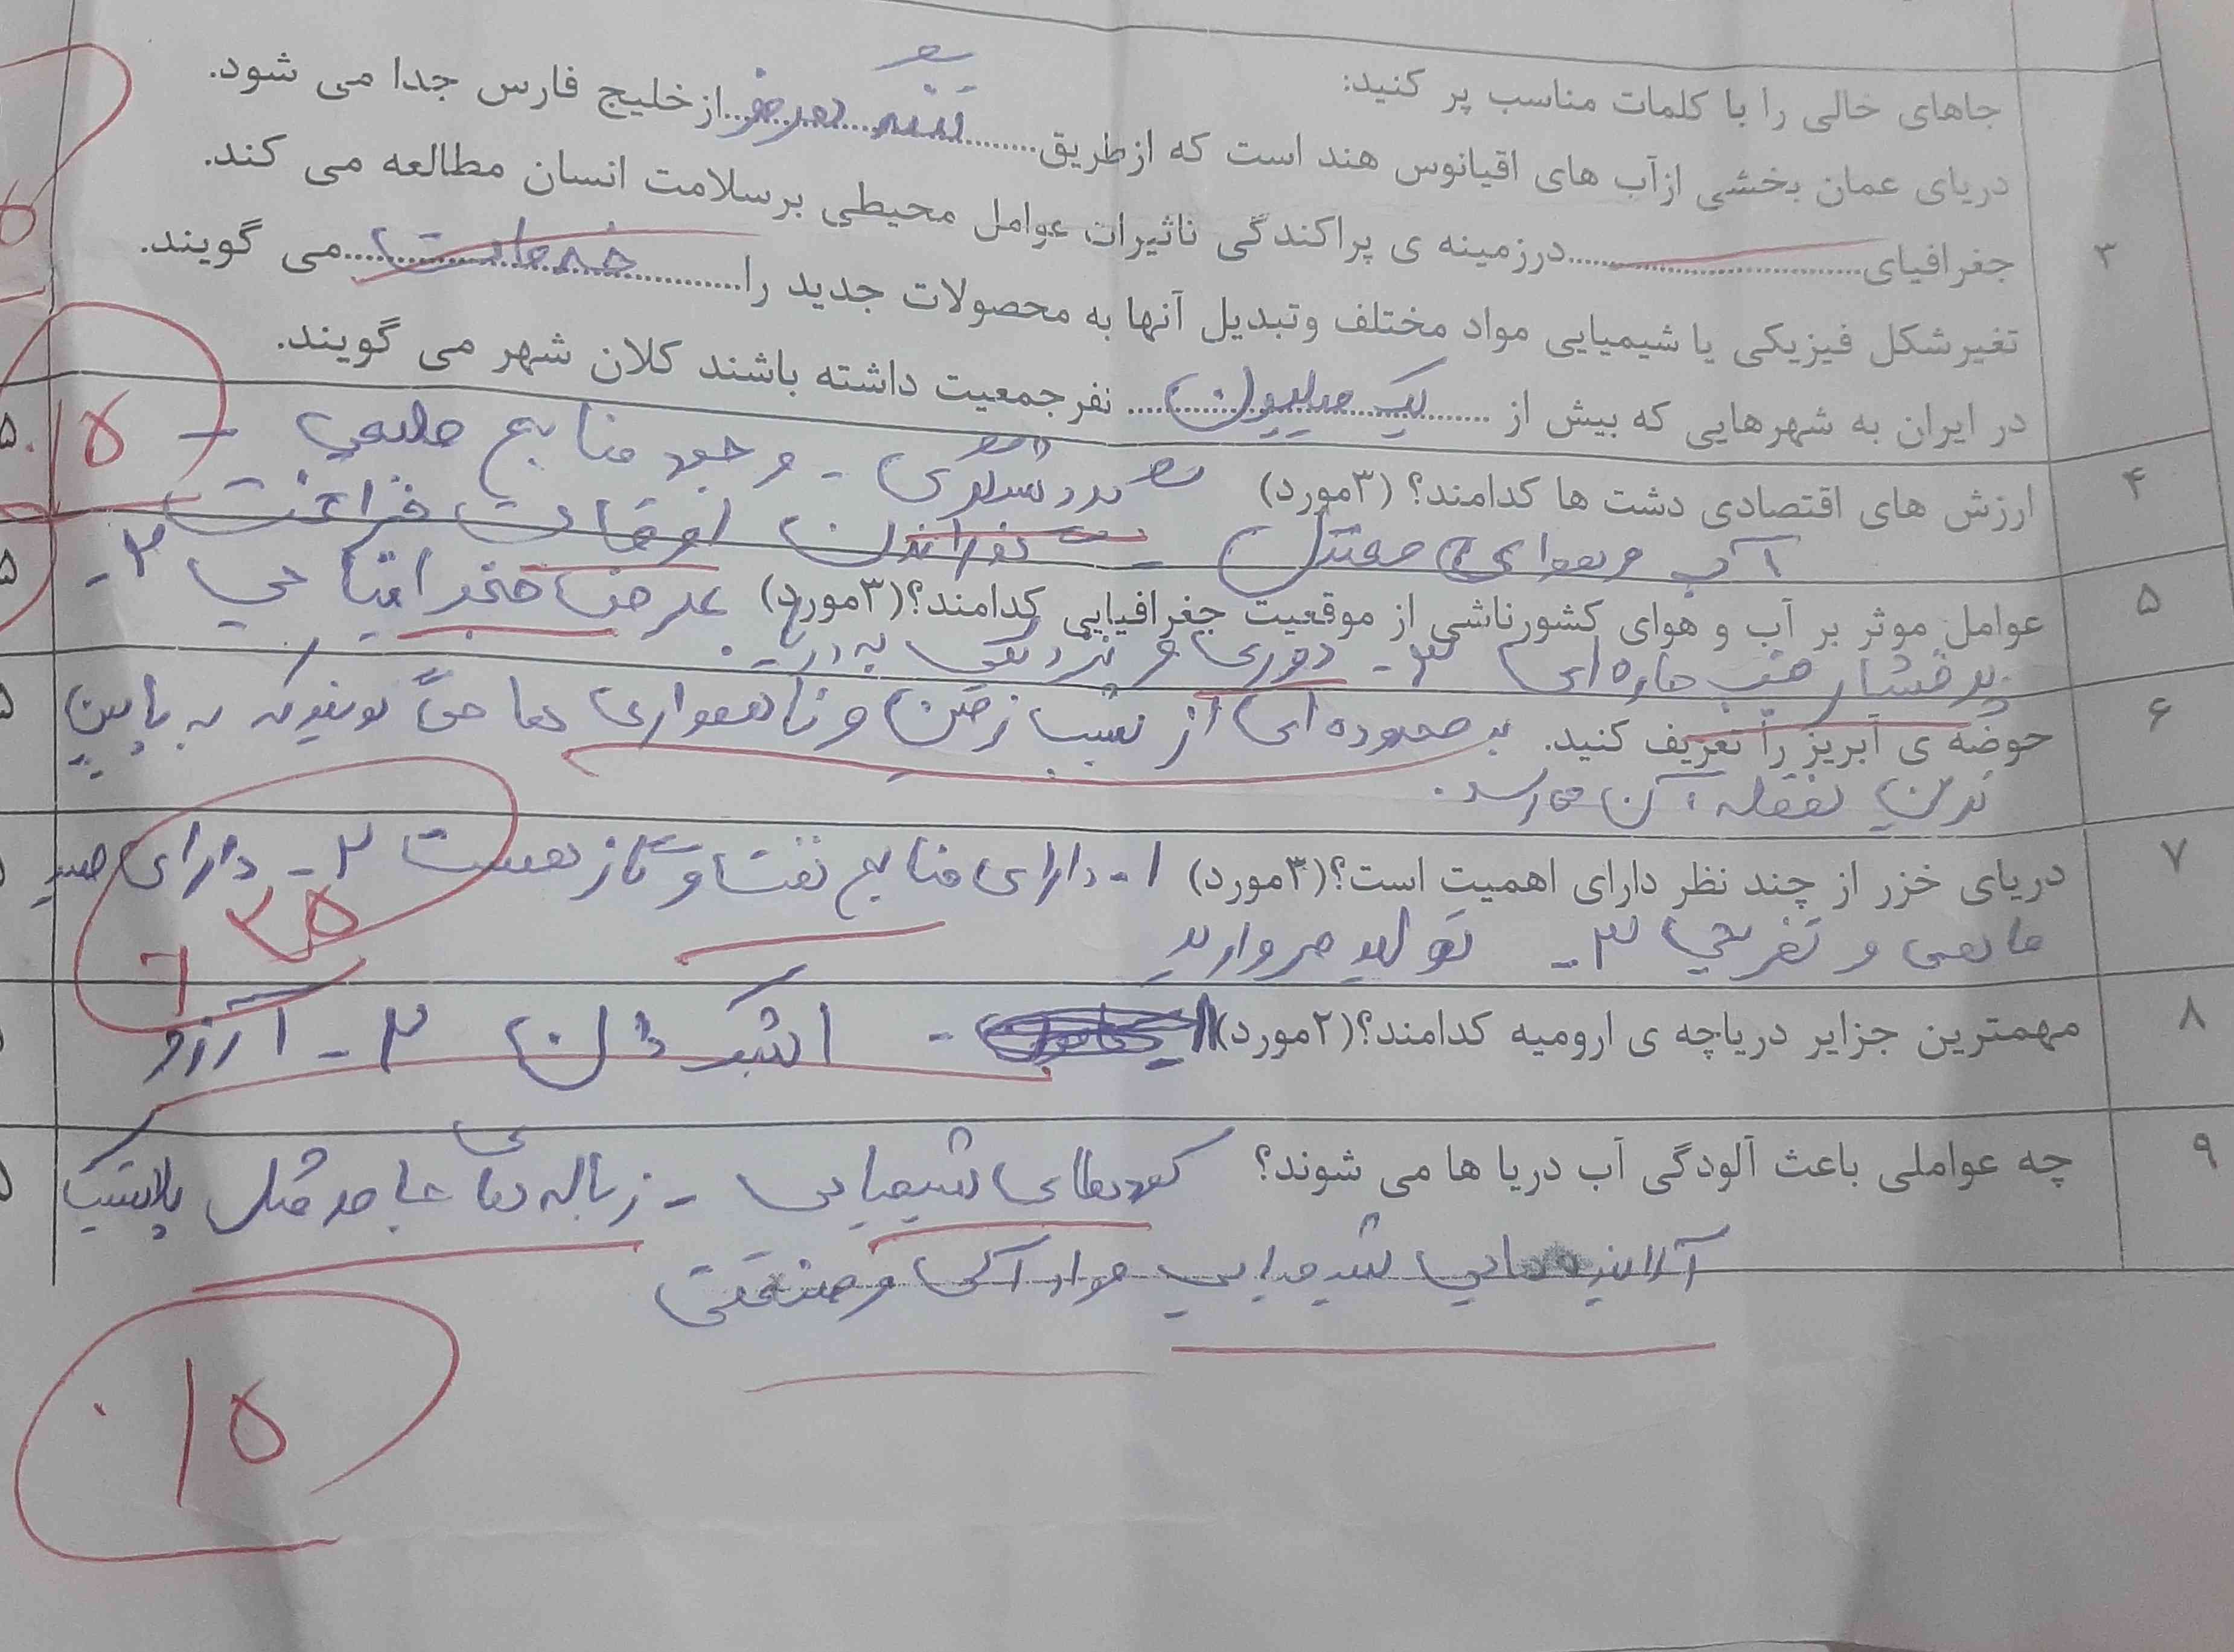 جاهای خالی را با کلمات مناسب پر کنید:
دریای عمان بخشی ازآب های اقیانوس هند است که ازطریق.......تنگه هرمز.......از خلیج فارس جدا می شود.
۳
جغرافیای..............................درزمینه ی پراکندگی تاثیرات عوامل محیطی برسلامت انسان مطالعه می کند.
تغیرشکل فیزیکی یا شیمیایی مواد مختلف وتبدیل آنها به محصولات جدید را.......خدمات.......می گویند.
در ایران به شهرهایی که بیش از .......یک میلیون....... نفرجمعیت داشته باشند کلان شهر می گویند.
۴
ارزش های اقتصادی دشت ها کدامند؟ (۳مورد) گردشگری - وجود منابع طبیعی -
آب و هوای معتدل - گذراندن اوقات فراغت
۵
عوامل موثر بر آب و هوای کشورناشی از موقعیت جغرافیایی کدامند؟(۳مورد) عرض جغرافیایی ۲-
پرفشار جنب حاره ای ۳- دوری و نزدیکی به دریا.
۶
حوضه ی آبریز را تعریف کنید. به محدوده ای از شیب زمین و ناهمواری ها می گویند که به پایین
ترین نقطه آن می رسد.
۷
دریای خزر از چند نظر دارای اهمیت است؟(۳مورد) ۱- دارای منابع نفت و گاز هست ۲- دارای صید
ماهی و تفریحی ۳- تولید مروارید
۸
مهمترین جزایر دریاچه ی ارومیه کدامند؟(۲مورد) - اشک دان ۲- آرزو
۹
چه عواملی باعث آلودگی آب دریا ها می شوند؟ کودهای شیمیایی - زباله های جامد مثل پلاستیک
آلاینده هایی شیمیایی مواد آلی و صنعتی